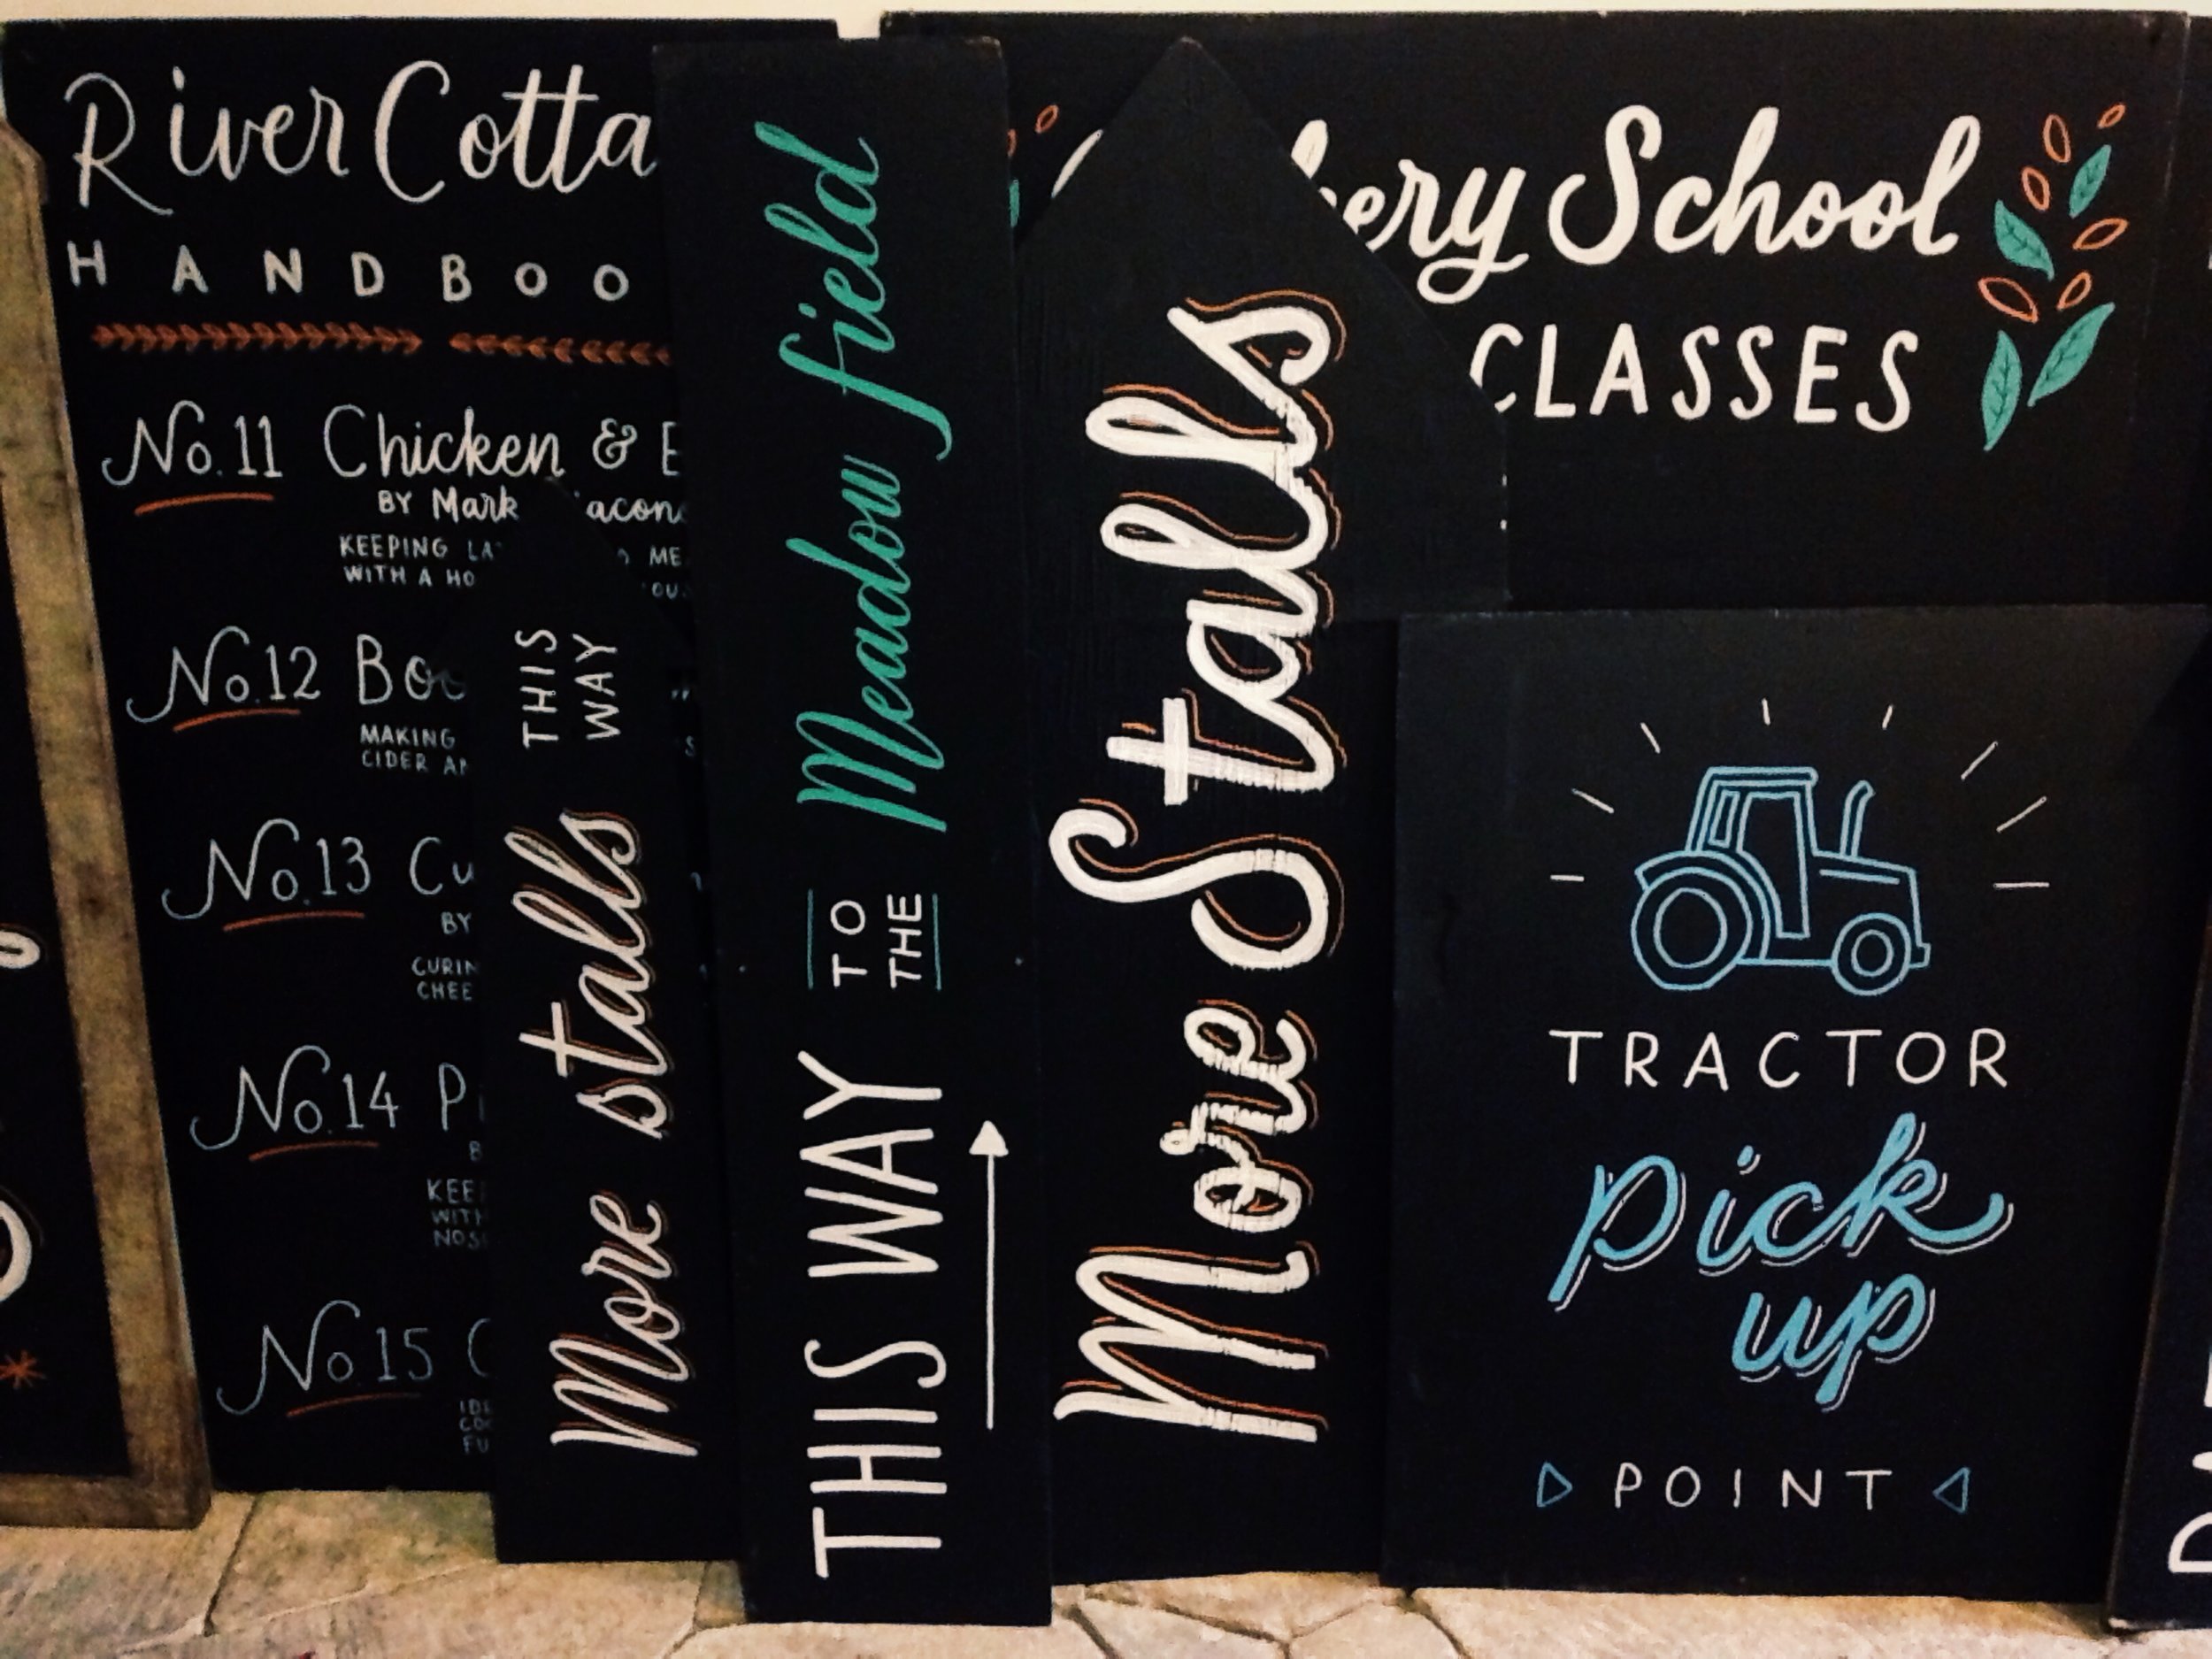 River Cotta
HANDBOO
No.11 Chicken & E
BY Mark
KEEPING
WITH A HO
No.12 Bo
MAKING
CIDER
No.13 Cu
BY
CURIN
CHEE
No.14 P
KEE
WITH
NOS
No.15 C
FU
More stalls THIS
WAY
THIS WAY TO
THE Meadow field
More Stalls
kery School
CLASSES
TRACTOR
pick
up
POINT